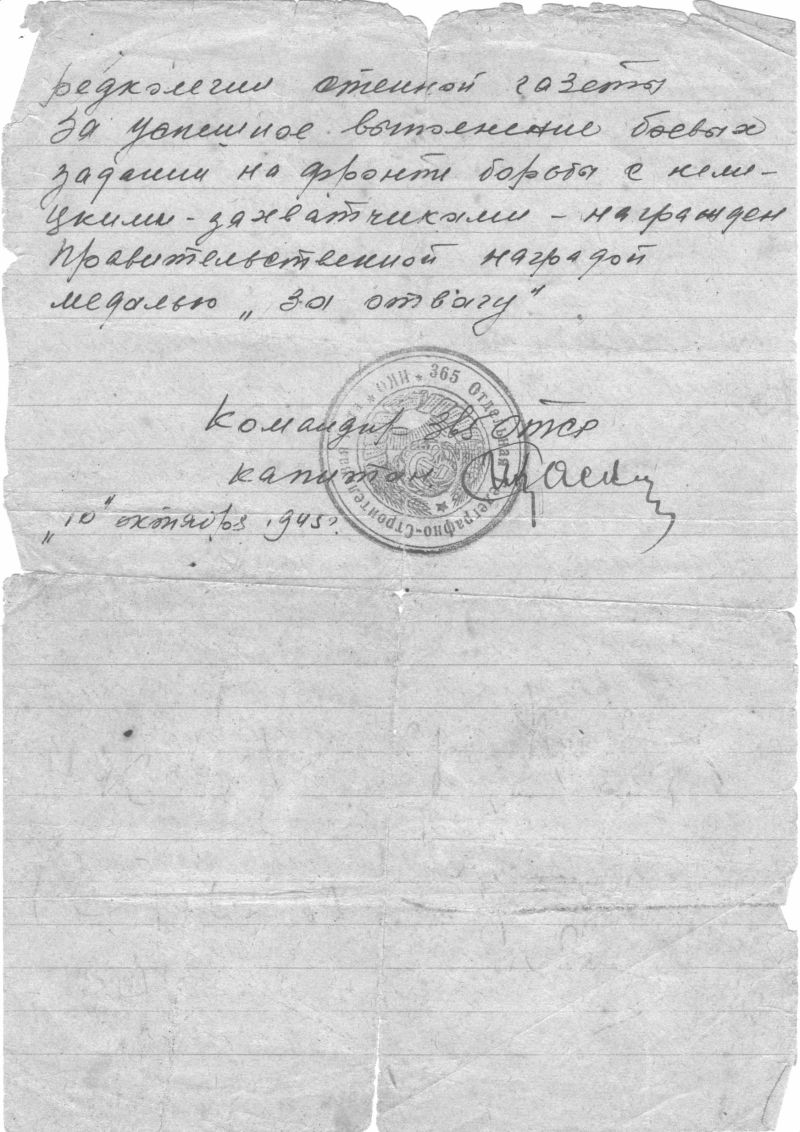 редколегии стенной газеты
За успешное выполнение боевых
заданий на фронте борьбы с неме-
цкими-захватчиками - награжден
Правительственной наградой
медалью „За отвагу"
Командир 365 ОТСР
капитан
„10" октября 1945 г.
НКО * 365 Отдельная Телеграфно-Строительная